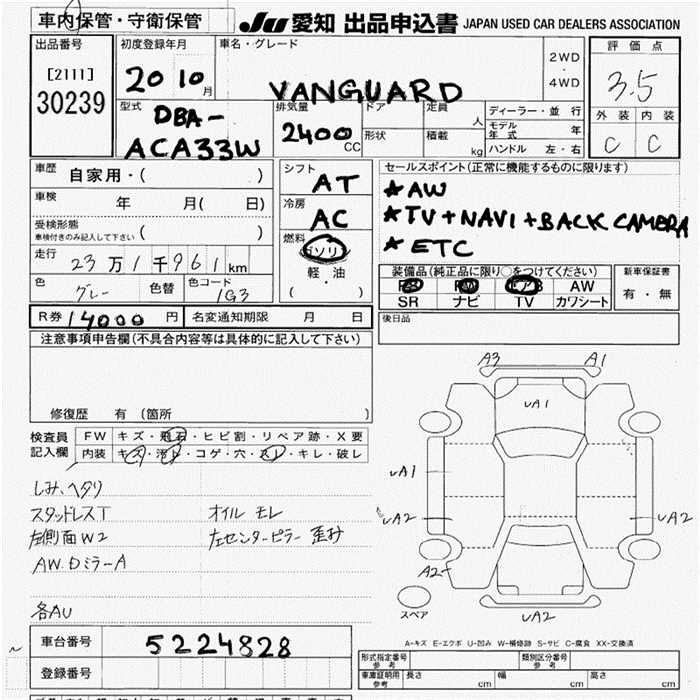 車内保管・守衛保管
JU 愛知 出品申込書 JAPAN USED CAR DEALERS ASSOCIATION
出品番号
[2111]
30239
初度登録年月
20 10月
車名・グレード
VANGUARD
2WD
・
4WD
評価点
3.5
外装 内装
C C
型式
DBA-
ACA33W
排気量
2400 CC
ドア
形状
定員 人
積載 kg
ディーラー・並行
モデル年式 年
ハンドル 左・右
車歴
自家用・( )
車検 年 月( 日)
受検形態
車検付きのみ記入して下さい ( )
走行 23万1千961km
色 グレー 色替 色コード 1G3
シフト
AT
冷房
AC
燃料
ガソリン
軽・油
( )
セールスポイント(正常に機能するものに限ります)
★AW
★TV+NAVI+BACK CAMERA
★ETC
装備品(純正品に限り○をつけてください)
PS PW エアB AW
SR ナビ TV カワシート
新車保証書
有・無
R券 14000円 名変通知期限 月 日
後日品
注意事項申告欄(不具合内容等は具体的に記入して下さい)
修復歴 有(箇所 )
検査員
記入欄
FW キズ・飛石・ヒビ割・リペア跡・X要
内装 キズ・汚レ・コゲ・穴・スレ・キレ・破レ
しみ、ヘタリ
スタッドレスT オイルモレ
左側面W2 左センターピラー歪み
AW.DミラーA
各AU
A3 A1
UA1
UA1
UA2 UA2
A2
スペア
UA2
A-キズ E-エクボ U-凹み W-補修跡 S-サビ C-腐食 XX-交換済
車台番号 5224828
登録番号
形式指定番号
参考
類別区分番号
参考
車庫証明用
参考
長さ cm 幅 cm 高さ cm